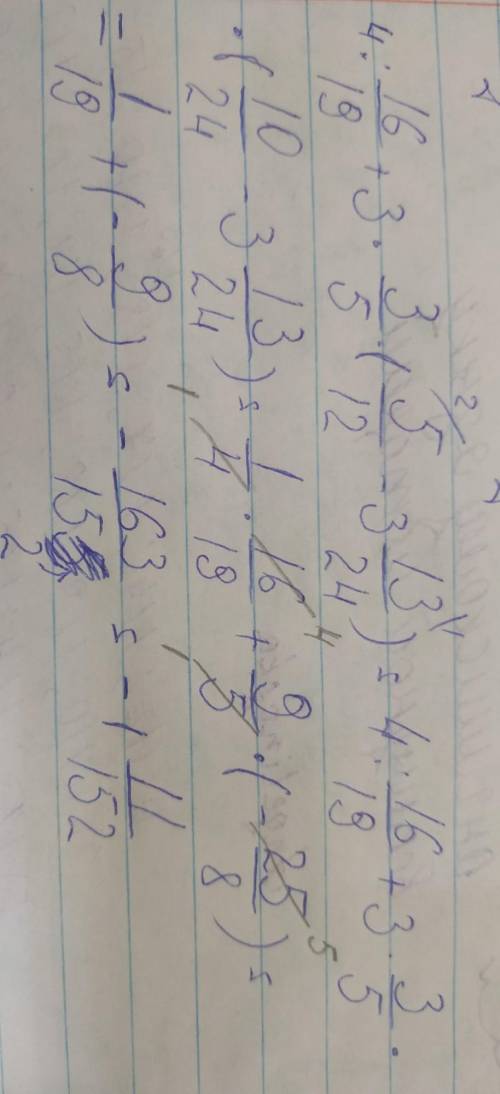 4 : 16/19 + 3 · 3/5 · (5/12 - 3 13/24) = 4 : 16/19 + 3 · 3/5 ·
· (10/24 - 3 13/24) = 1/4 · 16/19 + 9/5 · (- 25/8) =
= 1/19 + (- 9/8) = - 163/152 = - 1 11/152